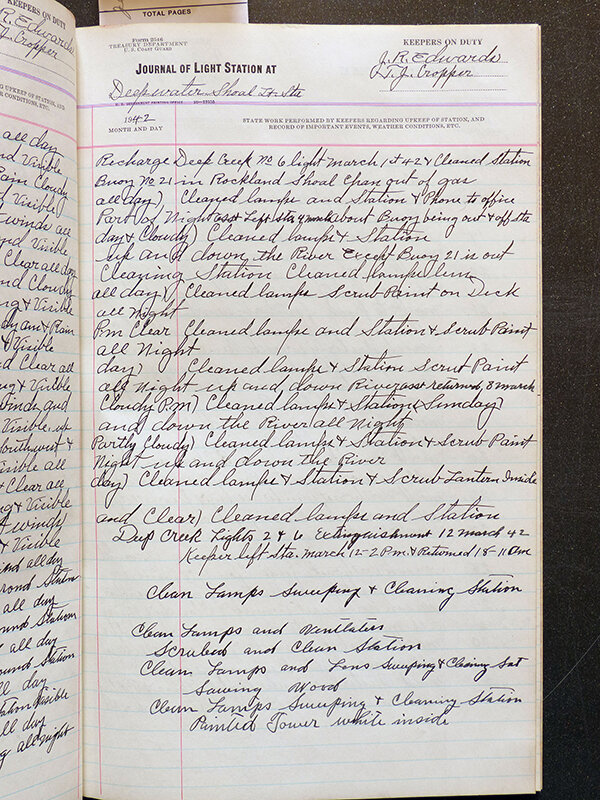 TOTAL PAGES
KEEPERS ON DUTY
J.R. Edwards
T.J. Cropper
UPKEEP OF STATION, AND
CONDITIONS, ETC.
all day
and Visible
Rain Cloudy
Visible
winds all
and Visible
Clear all day
and Cloudy
& Visible
and Rain
& Visible
Clear all
& Visible
winds and
Visible up
Southwest &
Visible all
Clear all
& Visible
winds
& Visible
and all day
round Station
all day
round Station
all day
round Station
all day
Station Visible
all day
all night
Form 2586
TREASURY DEPARTMENT
U.S. COAST GUARD
KEEPERS ON DUTY
J.R. Edwards
T.J. Cropper
JOURNAL OF LIGHT STATION AT
Deepwater Shoal Lt. Sta
1942
MONTH AND DAY
STATE WORK PERFORMED BY KEEPERS REGARDING UPKEEP OF STATION, AND
RECORD OF IMPORTANT EVENTS, WEATHER CONDITIONS, ETC.
Recharge Deep Creek No 6 light March 1st 42 & Cleaned Station
Buoy No. 21 in Rockland Shoal Chan out of gas
all day) Cleaned lamps and Station & Phone to office
Part of Night asst Left Sta 4 March about Buoy being out & off sta
day & Cloudy) Cleaned lamps & Station
up and down the River Except Buoy 21 is out
Cleaning Station Cleaned lamps lens
all day) Cleaned lamps Scrub Paint on Deck
all Night
Pm Clear Cleaned lamps and Station & Scrub Paint
all Night
day) Cleaned lamps & Station Scrub Paint
all Night up and down River asst returned 8 March
Cloudy P.m) Cleaned lamps & Station (Sunday)
and down the River all Night
Partly Cloudy) Cleaned lamps & Station & Scrub Paint
Night up and down the River
day) Cleaned lamps & Station & Scrub Lantern Inside
and Clear) Cleaned lamps and Station
Deep Creek Lights 2 & 6 Extinguishment 12 March 42
Keeper left Sta. March 12-2 P.m. & Returned 18-11 am
Clean Lamps Sweeping & Cleaning Station
Clean Lamps and Ventilaters
Scrubed and Clean Station
Clean Lamps and Lens Sweeping & Cleaing Sat
Sawing Wood
Clean Lamps Sweeping & Cleaning Station
Painted Tower white inside